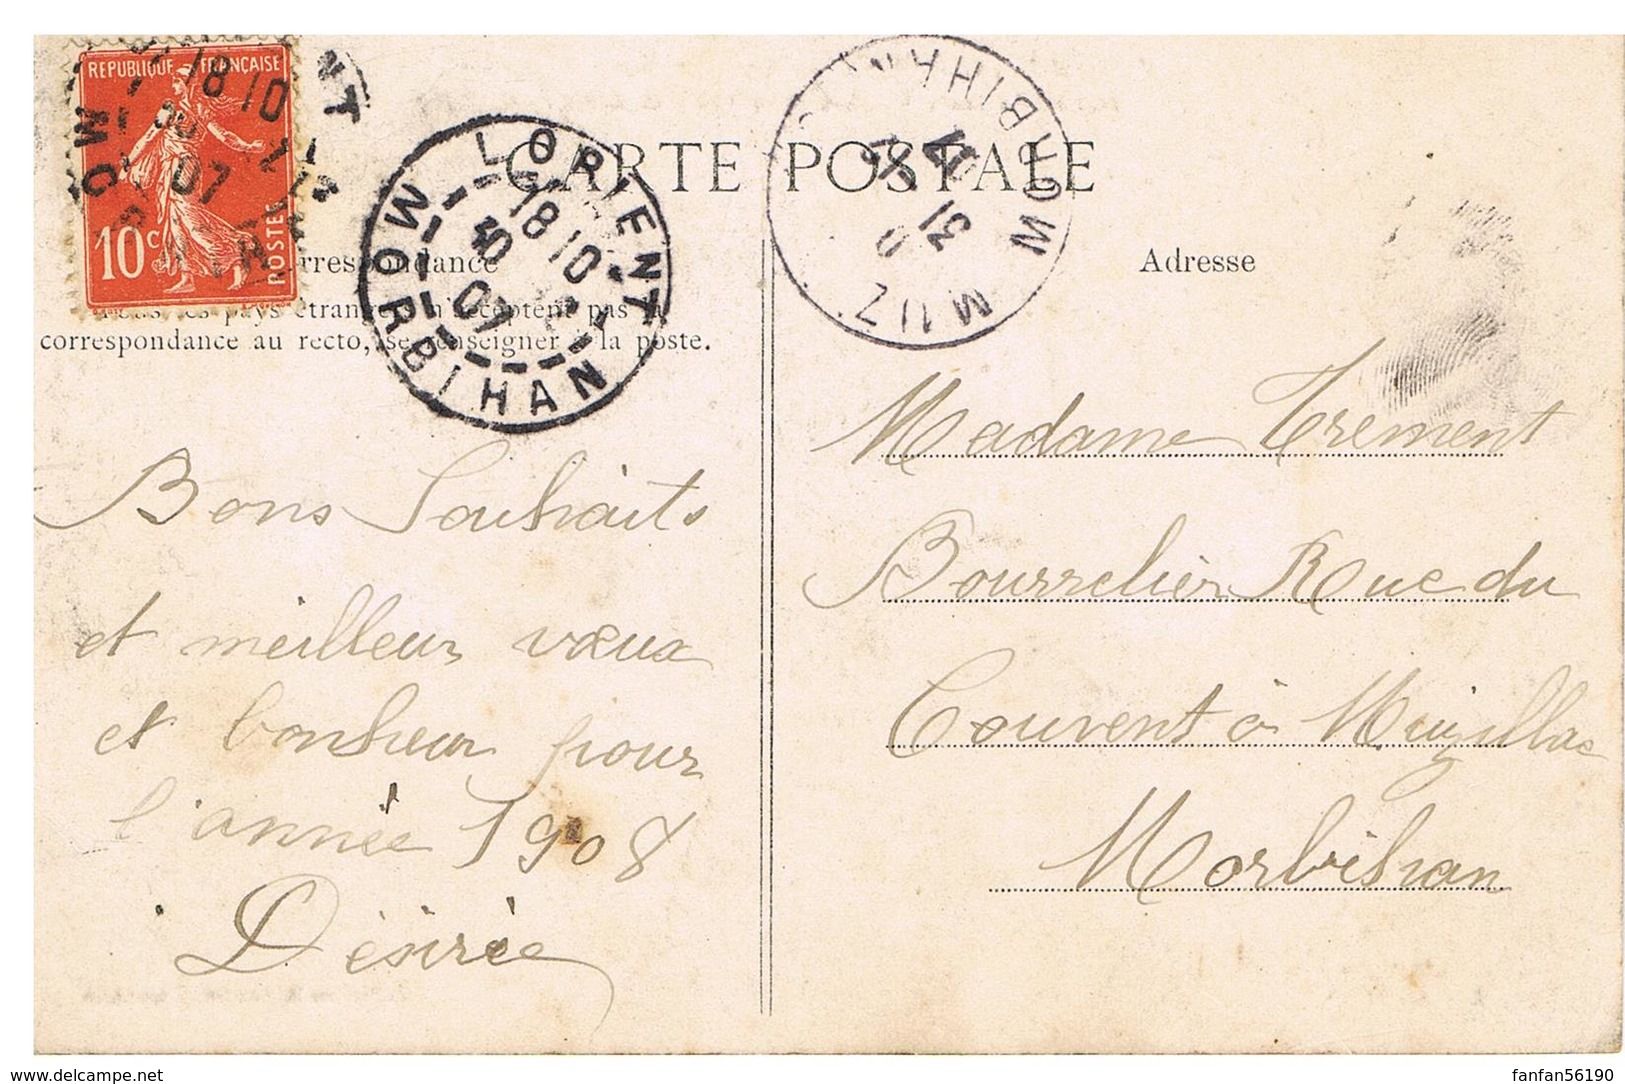 REPUBLIQUE FRANÇAISE
10c POSTES
LORIENT
18 10
30
07
MORBIHAN
MORBIHAN
31
CARTE POSTALE
Correspondance
Tous les pays étrangers n'acceptent pas la
correspondance au recto, se renseigner à la poste.
Adresse
Bons Souhaits
et meilleur vœux
et bonheur pour
l'année 1908
Désirée
Madame Trement
Bourrelier Rue du
Couvent à Muzillac
Morbihan
delcampe.net
fanfan56190